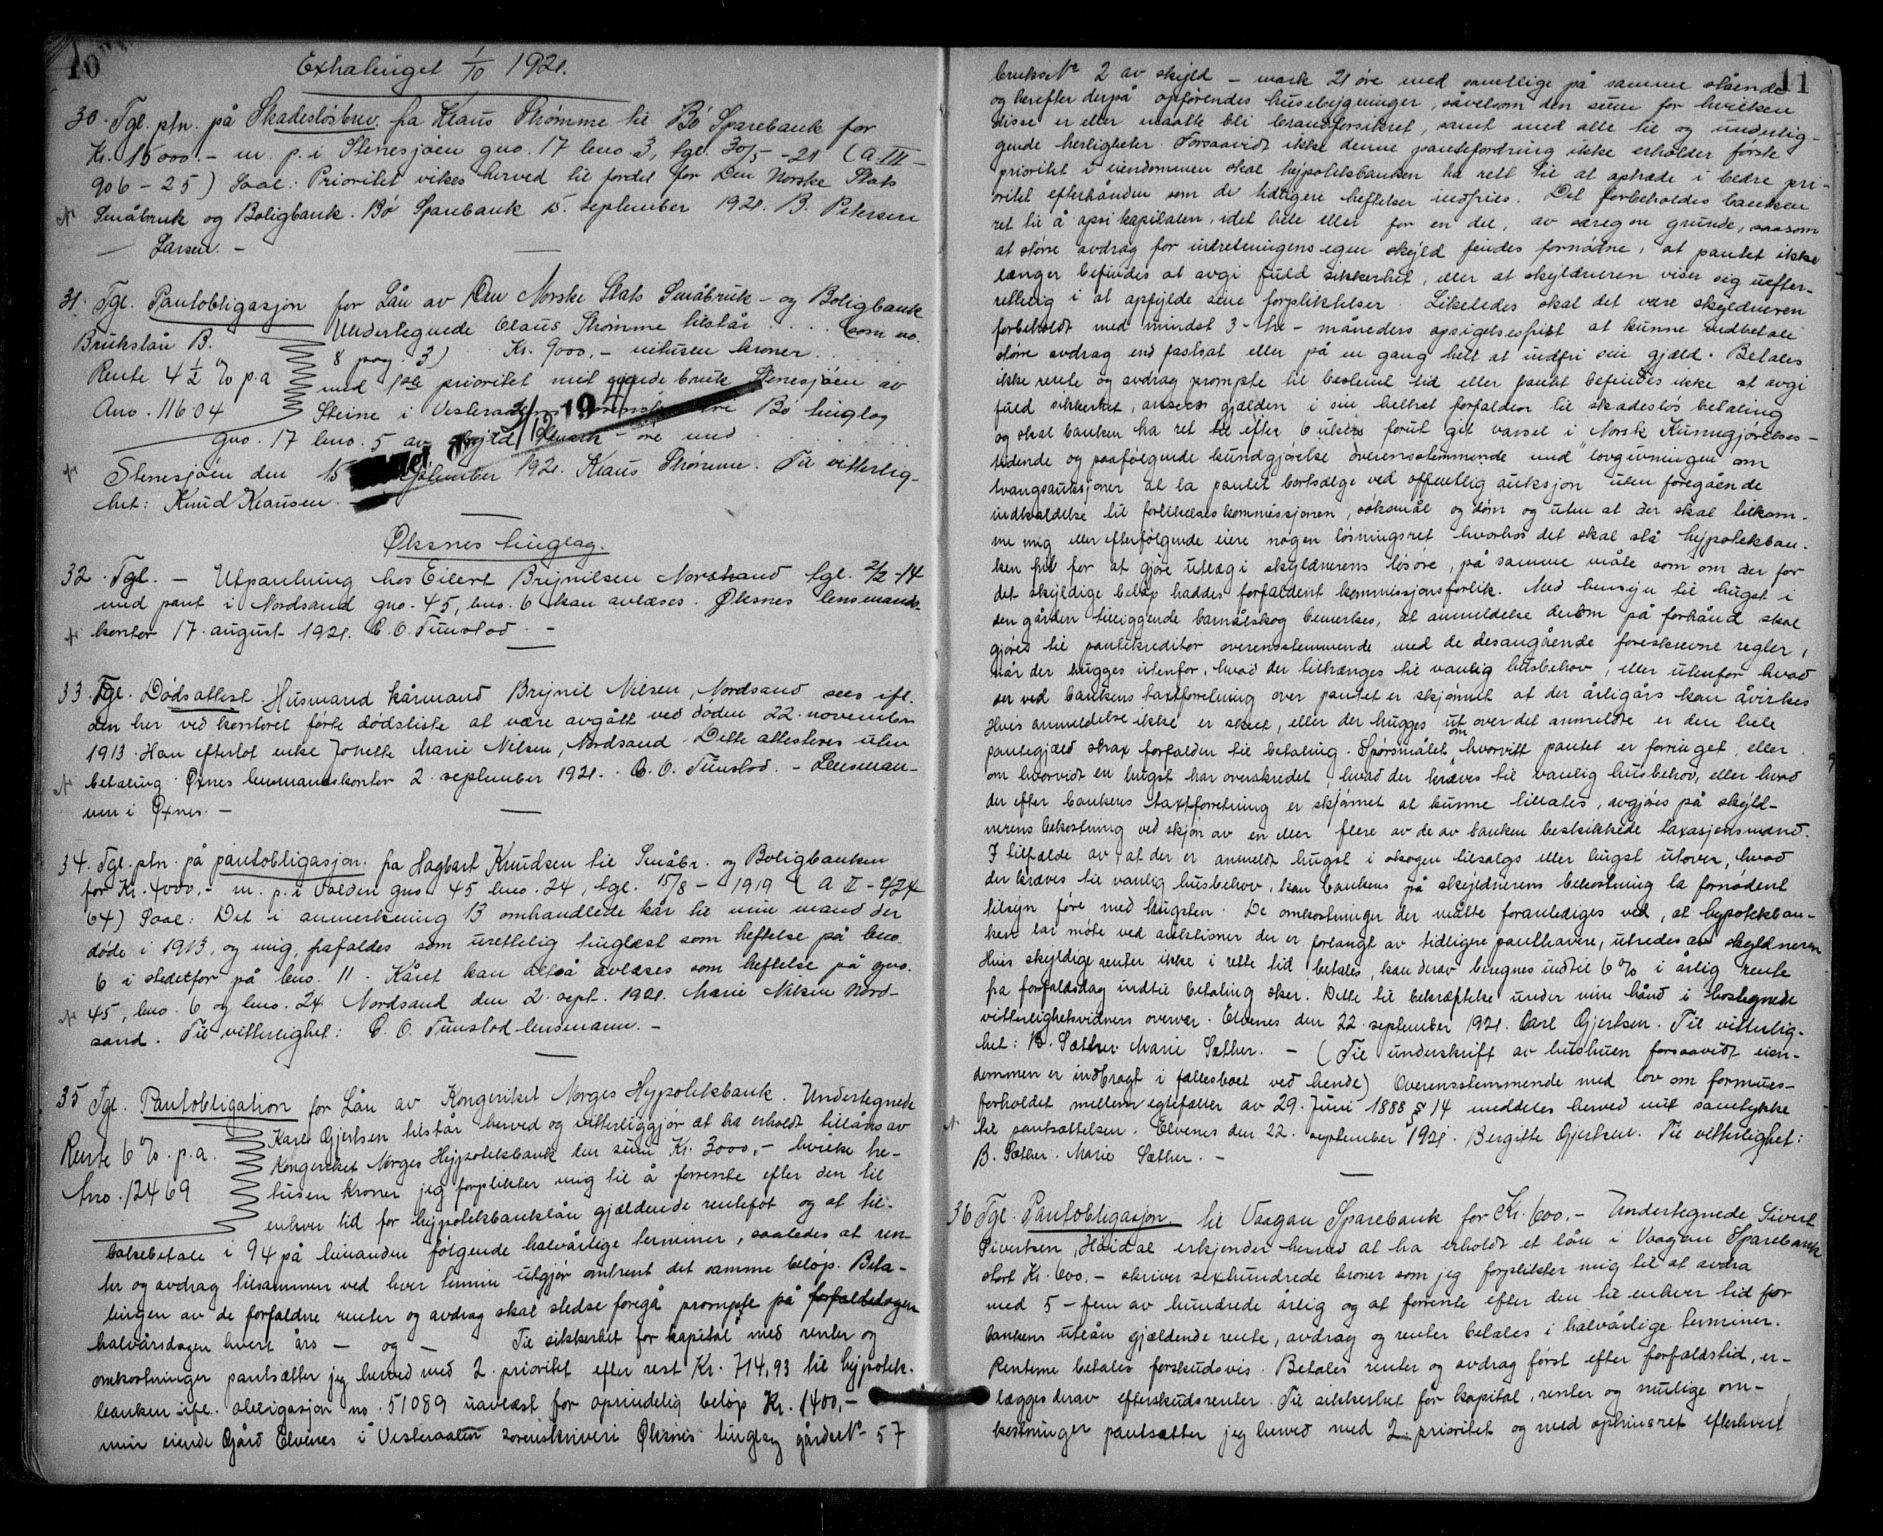 10
Extratinget 1/10 1921.
30. Tgl. ptn. på Skadesløsbrev fra Klaus Strømme til Bø Sparebank for
Kr. 15000.- m. p. i Stenesjøen gno. 17 bno. 3, tgl. 30/5 - 21 (A III -
906 - 25) Saal: Prioritet vikes herved til fordel for Den Norske Stats
Småbruk og Boligbank. Bø Sparebank 15. september 1921. B. Petersen
Larsen. -
31. Tgl. Pantobligasjon for Lån av Den Norske Stats Småbruk - og Boligbank
Brukslån B. Undertegnede Claus Strømme tilstår . . . (som no.
8 pag. 3) Kr. 9000.- nitusen kroner . . .
Rente 4 1/2 % p.a med 1ste prioritet mit eiende bruk Stenesjøen av
Ano. 11604 Steine i Vesteraalens Bø tinglag
gno. 17 bno. 5 av skyld mark - øre med . . .
Stenesjøen den 15 september 1921. Klaus Strømme. Til vitterlig-
het: Knud Klausen.
Øksnes tinglag.
32. Tgl. - Utpantning hos Eilert Brijnilsen Nordsand tgl. 2/2-14
med pant i Nordsand gno. 45, bno. 6 kan avlæses. Øksnes lensmands-
kontor 17. august 1921. C. O. Tunstad. -
33. Tgl. Dødsattest. Husmand kårmand Brijnil Nilsen, Nordsand sees ifl.
den her ved kontoret førte dødsliste at være avgått ved døden 22. november
1913. Han efterlot enke Jonette Marie Nilsen, Nordsand. Dette attesteres uten
betaling. Øxnes lensmandskontor 2. september 1921. C. O. Tunstad. - Lensman-
nen i Øxnes. -
34. Tgl. ptn. på pantobligasjon fra Hagbart Knudsen til Småbr. og Boligbanken
for Kr. 4000.- m. p. i Volden gno 45 bno. 24, tgl. 15/8 - 1919 (A II - 9/24
64) Saal: Det i anmerkning 13 omhandlede kår til min mand der
døde i 1913, og mig, frafaldes som urettelig tinglæst som heftelse på bno.
6 i stedetfor på bno. 11. Kåret kan altså avlæses som heftelse på gno.
45, bno. 6 og bno. 24. Nordsand den 2. sept. 1921. Marie Nilsen Nord-
sand. Til vitterlighet: C. O. Tunstad lensmann. -
35 Tgl. Pantobligation for Lån av Kongeriket Norges Hypotekbank. Undertegnede
Karel Gjertsen tilstår herved og vitterliggjør at ha erholdt tillåns av
Rente 6% p.a. Kongeriket Norges Hypotekbank den sum Kr. 3000,- hvilke tre-
Ano. 12469 tusen kroner jeg forplikter mig til å forrente efter den til
enhver tid for hypotekbanklån gjældende rentefot og at til-
bakebetale i 94 på hinanden følgende halvårlige terminer, saaledes at ren-
ter og avdrag tilsammen ved hver termin utgjør omtrent det samme beløp. Beta-
lingen av de forfaldne renter og avdrag skal stedse foregå prompte på forfaldsdagen
halvårsdagen hvert års - og - Til sikkerhet for kapital med renter og
omkostninger pantsætter jeg herved med 2. prioritet efter rest Kr. 714,93 til hypotek-
banken ifl. obligasjon no. 51089 uavlæst for oprindelig beløp Kr. 1400,-
min eiende Gård Elvenes i Vesteraalen sorenskriveri Øksnes tinglag gårds Nr 57
11
bruks Nr 2 av skyld - mark 21 øre med samtlige på samme stående
og herefter derpå opførendes husebygninger, såvelsom den sum for hvilken
disse er eller maatte bli brandforsikret, samt med alle til og underlig-
gende herligheter. Forsaavidt ikke denne pantefordring ikke erholder første
prioritet i eiendommen skal hypotekbanken ha rett til at optræde i bedre pri-
oritet efterhånden som de tidligere heftelser indfries. Det forbeholdes banken
ret til å opsi kapitalen, idet hele eller for en del, av særegne grunde, saasom
at større avdrag for indretningens egen skyld findes fornødne, at pantet ikke
længer befindes at avgi fuld sikkerhet, eller at skyldneren viser sig uefter-
rettelig i at opfylde sine forpliktelser. Likeledes skal det være skyldneren
forbeholdt med mindst 3 - tre - måneders opsigelsesfrist at kunne indbetale
større avdrag end fastsat eller på en gang helt at indfri sin gjæld. Betales
ikke rente og avdrag prompte til bestemt tid eller pantet befindes ikke at avgi
fuld sikkerhet, ansees gjælden i sin helhet forfalden til skadesløs betaling
og skal banken ha ret til efter 6 ukers forut git varsel i Norsk Kunngjørelses-
tidende og paafølgende kundgjørelse overensstemmende med lovgivningen om
tvangsauksjoner at la pantet bortsælge ved offentlig auksjon uten foregående
indkaldelse til forlikelseskommissjonen, søksmål og dom og uten at der skal tilkom-
me mig eller efterfølgende eiere nogen løsningsret hvorhos det skal stå hypotekban-
ken frit for at gjøre utlæg i skyldnerens løsøre, på samme måte som om der for
det skyldige beløp haddes forfaldent kommissjonsforlik. Med hensyn til hugst i
den gården tilliggende barnålskog bemerkes, at anmeldelse derom på forhånd skal
gjøres til pantekreditor overensstemmende med de desangående foreskrevne regler,
når der hugges utenfor, hvad der tiltrænges til vanlig husbehov, eller utenfor hvad
der ved bankens taxtforretning over pantet er skjønnet at der årligårs kan åvirkes
Hvis anmeldelse ikke er skeet, eller der hugges ut over det anmeldte er den hele
pantegjæld strax forfalden til betaling. Spørsmålet om hvorvitt pantet er forringet, eller
om hvorvidt en hugst har overskredet, hvad der kræves til vanlig husbehov, eller hvad
der efter bankens taxtforretning er skjønnet at kunne tillates, avgjøres på skyld-
nerens bekostning ved skjøn av en eller flere av de av banken beskikkede taxasjonsmænd.
I tilfælde av at der er anmeldt hugst i skogen tilsalgs eller hugst utover, hvad
der kræves til vanlig husbehov, kan banken på skyldnerens bekostning la fornødent
tilsyn føre med hugsten. De omkostninger der måtte foranlediges ved, at hypotekban-
ken lar møte ved auktioner der er forlangt av tidligere panthavere, utredes av skyldneren
Hvis skyldige renter ikke i rette tid betales, kan derav beregnes indtil 6% i årlig rente
fra forfaldsdag indtil betaling sker. Dette til bekræftelse under min hånd i hostegnede
vitterlighetsvidners overvær. Elvenes den 22. september 1921. Carl Gjertsen. Til vitterlig-
het: B. Sæther Marie Sæther. - (Til underskrift av hustruen forsaavidt eien-
dommen er indbragt i fællesboet ved hende) Overensstemmende med lov om formues-
forholdet mellem egtefæller av 29. Juni 1888 § 14 meddeles herved mit samtykke
til pantsættelsen. Elvenes den 22. september 1921. Bergitte Gjertsen. Til vitterlighet:
B. Sæther. Marie Sæther. -
36 Tgl. Pantobligasjon til Vaagan Sparebank for Kr. 600.- Undertegnede Sivert
Sivertsen, Haidal erkjender herved at ha erholdt et lån i Vaagan Sparebank
stort Kr. 600.- skriver sexhundrede kroner som jeg forplikter mig til at avdra
med 5 - fem av hundrede årlig og at forrente efter den til enhver tid for
bankens utlån gjældende rente, avdrag og renter betales i halvårlige terminer.
Renterne betales forskudsvis. Betales renter og avdrag først efter forfaldstid, er-
lægges derav efterskudsrenter. Til sikkerhet for kapital, renter og mulige om-
kostninger pantsætter jeg herved med 2 prioritet og med opkrinsret efterhvert